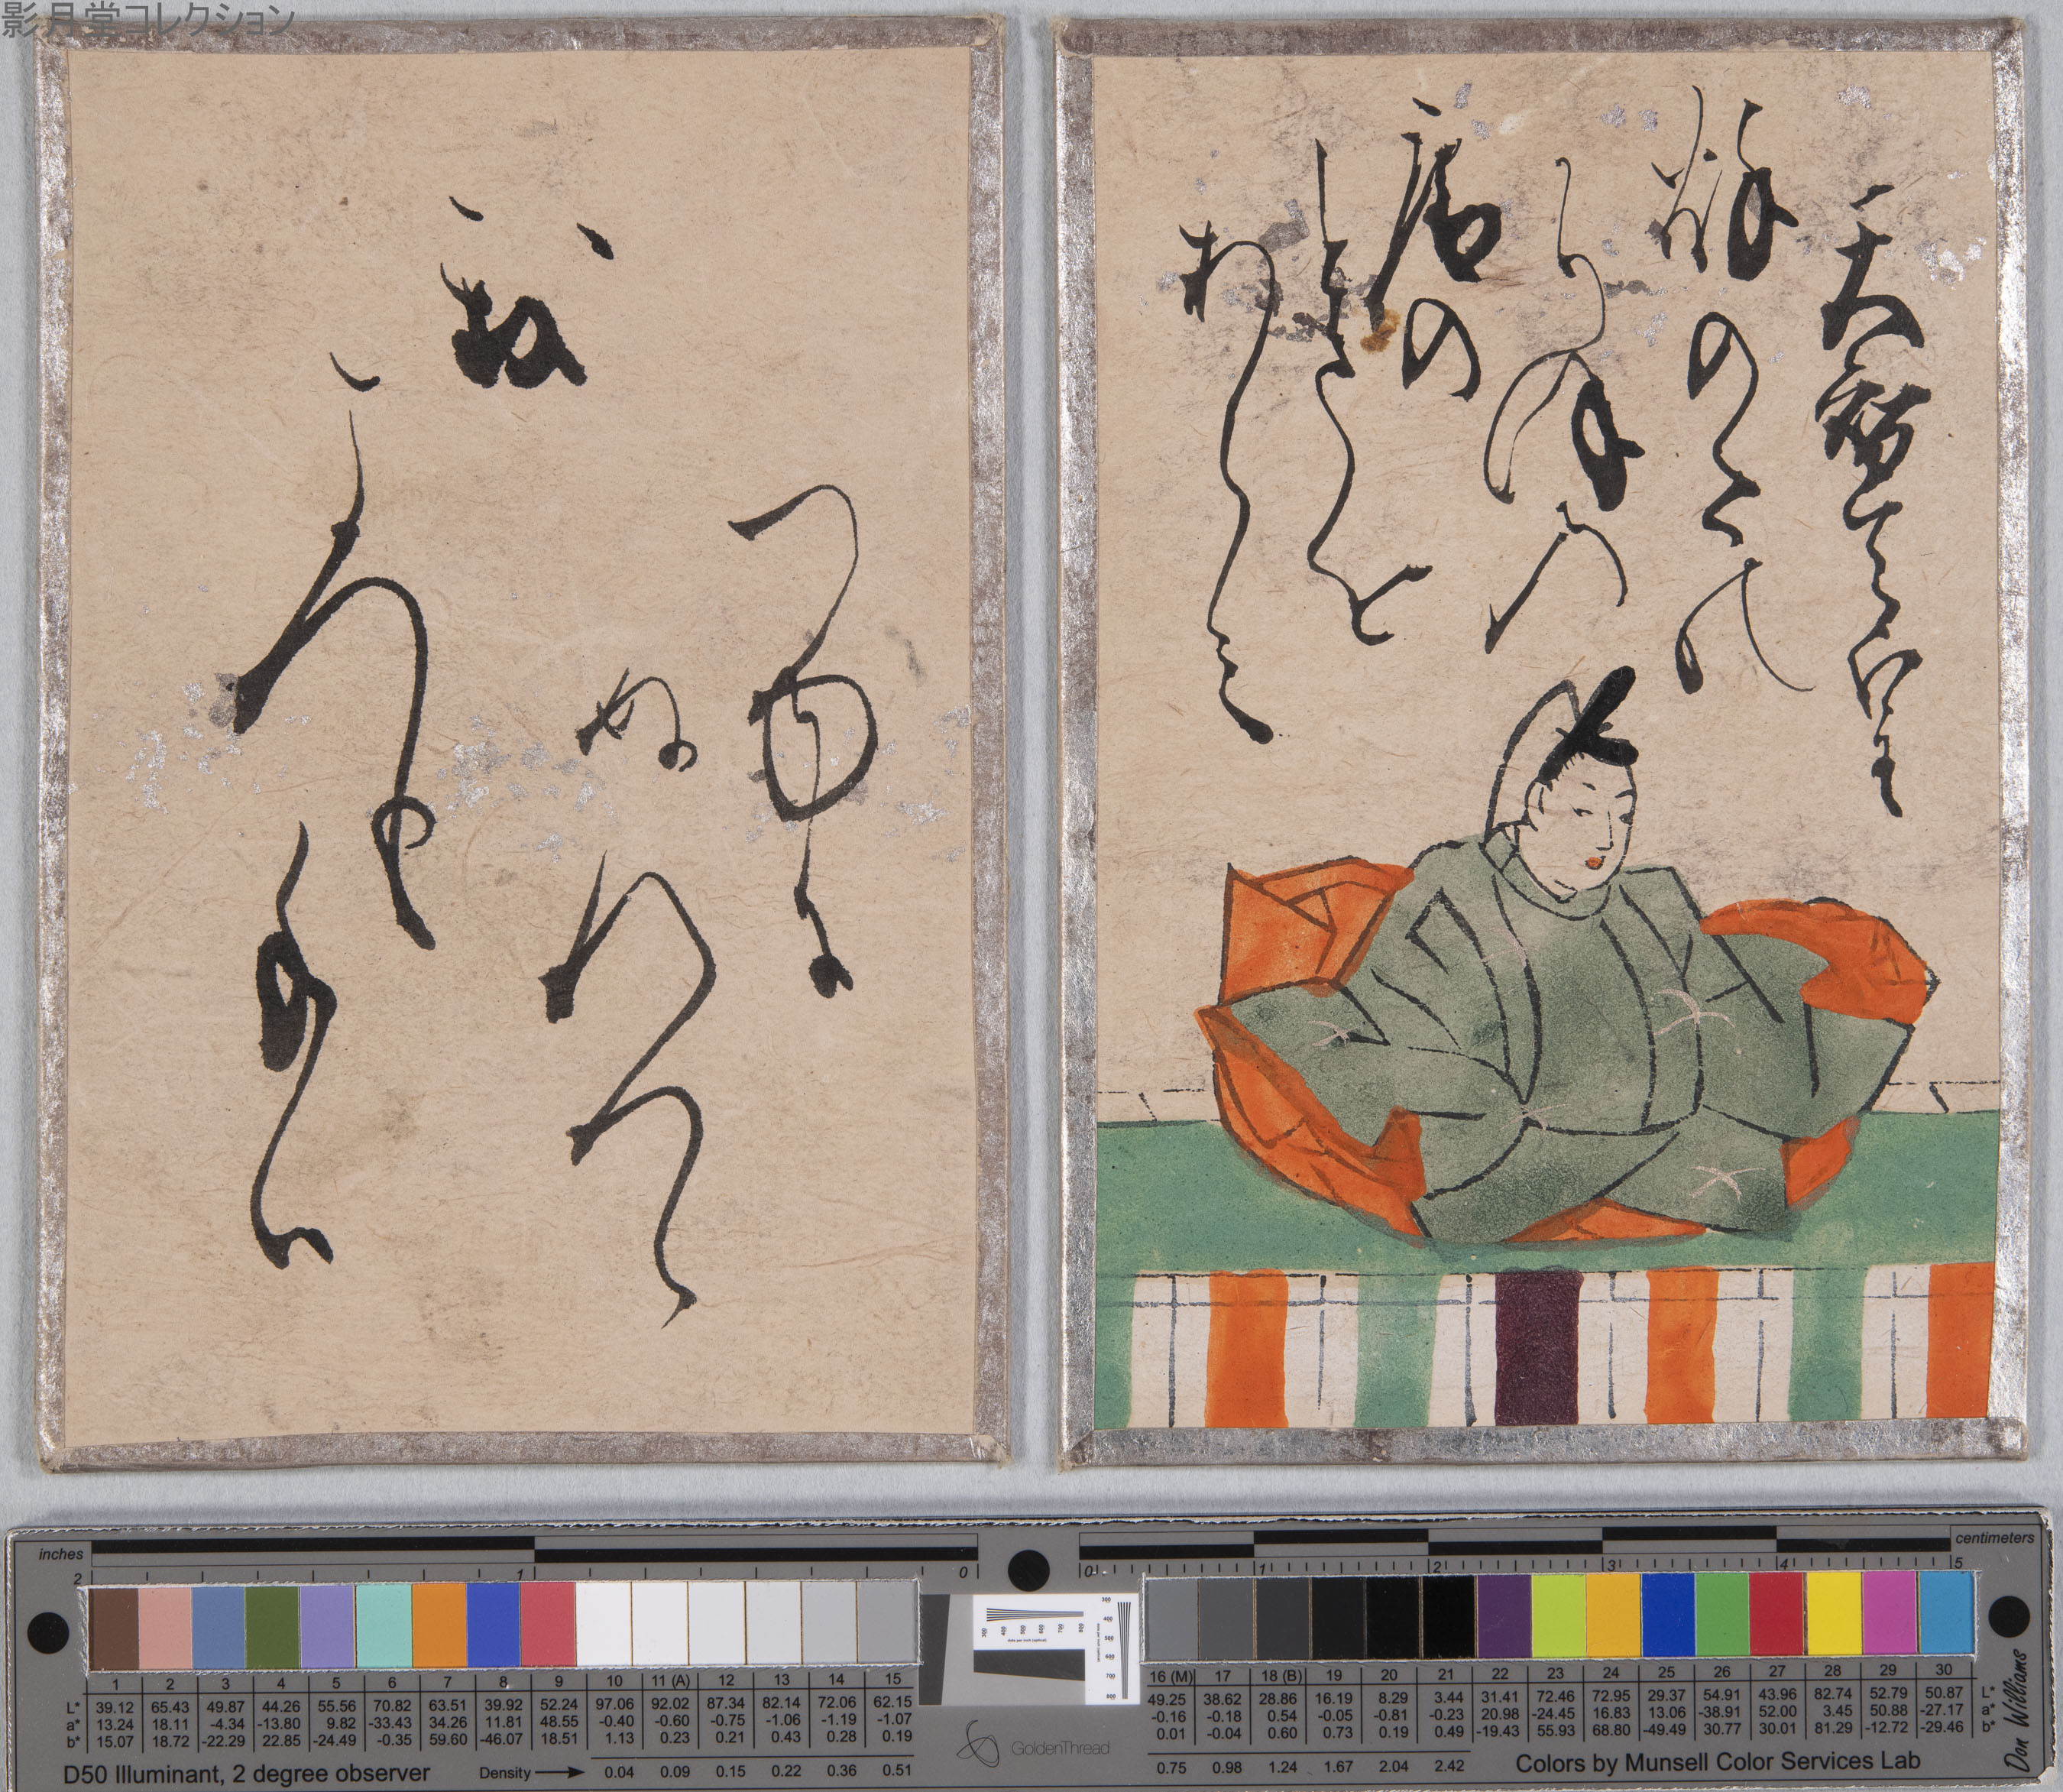 影月堂コレクション
天智天皇
秋のたの
かりほの
庵の
とまを
あらみ
我
ころも
手は
つゆに
ぬれ
つゝ
inches
2 1 0
centimeters
0 1 2 3 4 5
1 2 3 4 5 6 7 8 9 10 11 (A) 12 13 14 15
L* 39.12 65.43 49.87 44.26 55.56 70.82 63.51 39.92 52.24 97.06 92.02 87.34 82.14 72.06 62.15
a* 13.24 18.11 -4.34 -13.80 9.82 -33.43 34.26 11.81 48.55 -0.40 -0.60 -0.75 -1.06 -1.19 -1.07
b* 15.07 18.72 -22.29 22.85 -24.49 -0.35 59.60 -46.07 18.51 1.13 0.23 0.21 0.43 0.28 0.19
D50 Illuminant, 2 degree observer
Density 0.04 0.09 0.15 0.22 0.36 0.51
GoldenThread
16 (M) 17 18 (B) 19 20 21 22 23 24 25 26 27 28 29 30
49.25 38.62 28.86 16.19 8.29 3.44 31.41 72.46 72.95 29.37 54.91 43.96 82.74 52.79 50.87 L*
-0.16 -0.18 0.54 -0.05 -0.81 -0.23 20.98 -24.45 16.83 13.06 -38.91 52.00 3.45 50.88 -27.17 a*
0.01 -0.04 0.60 0.73 0.19 0.49 -19.43 55.93 68.80 -49.49 30.77 30.01 81.29 -12.72 -29.46 b*
0.75 0.98 1.24 1.67 2.04 2.42
Colors by Munsell Color Services Lab
Don Williams